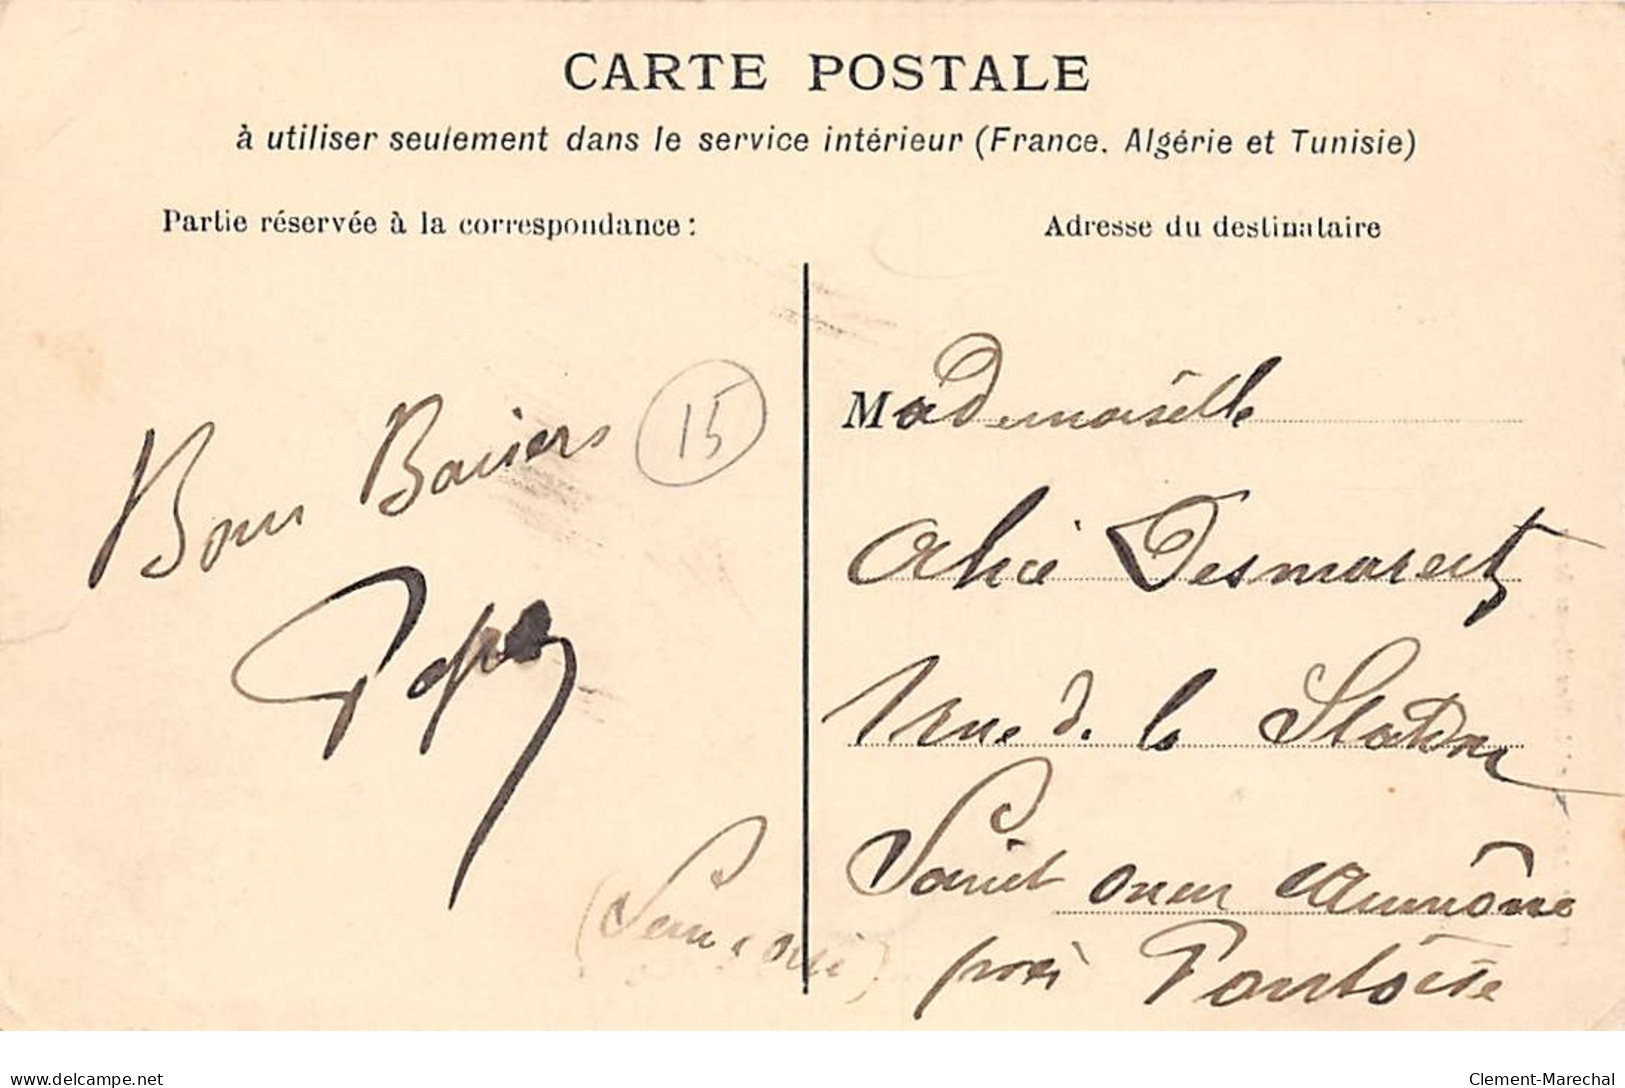 CARTE POSTALE
à utiliser seulement dans le service intérieur (France. Algérie et Tunisie)
Partie réservée à la correspondance :
Adresse du destinataire
Bons Baisers
15
Papa
Mademoiselle
Alice Desmarest
rue de la Station
Saint Ouen l'Aumône
près Pontoise
(Seine & Oise)
delcampe.net
Clement-Marechal